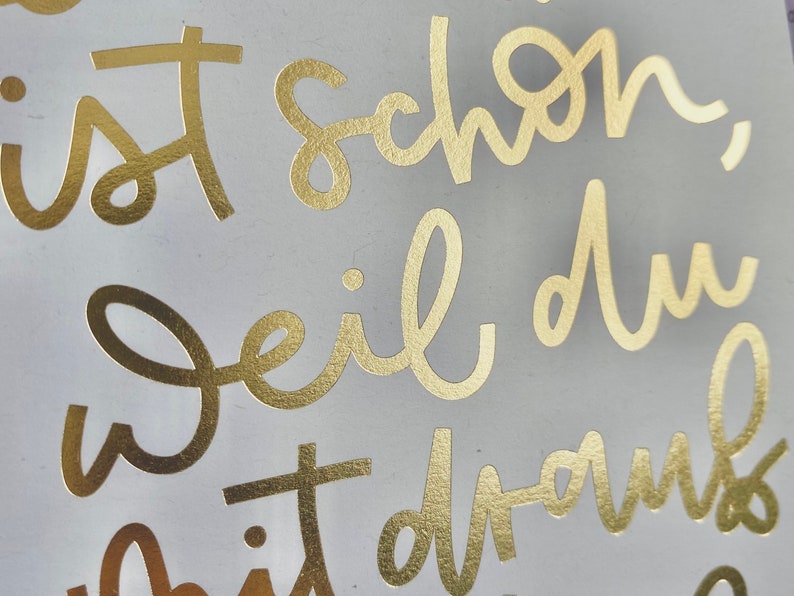 ist schön,
weil du
mit drauß